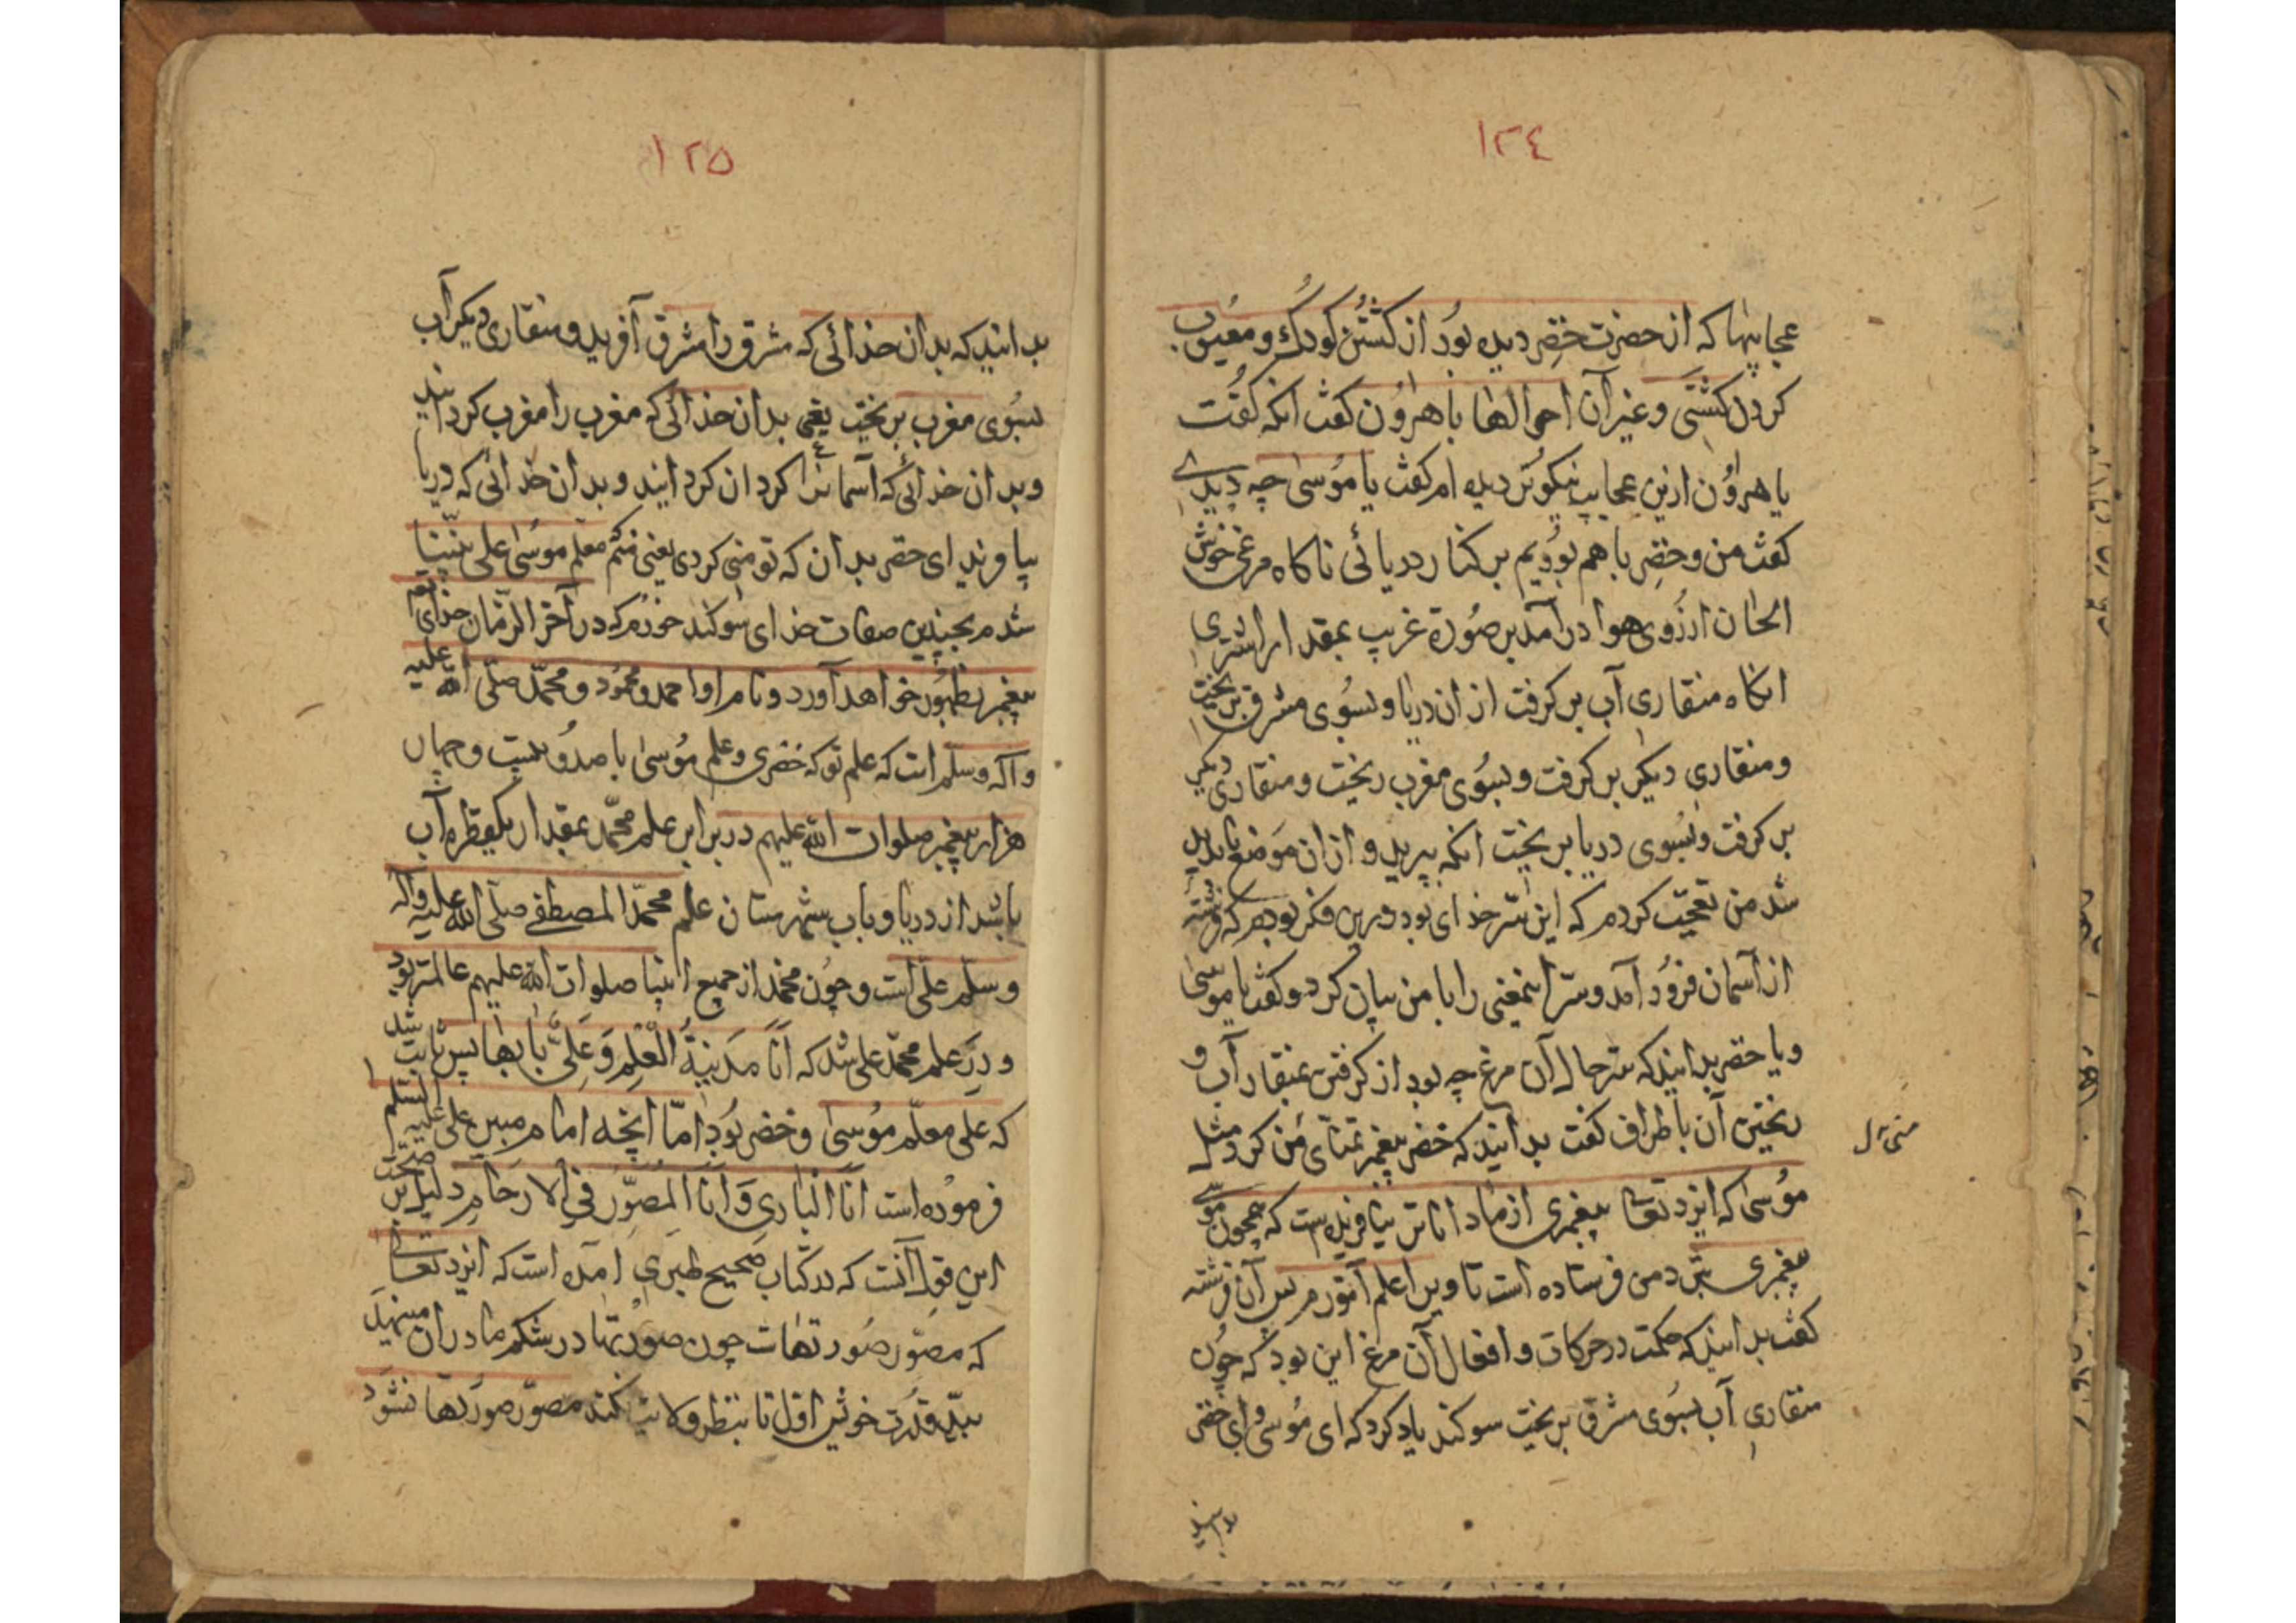 ١٢٤
عجایبها که از حضرت خضر دیده بود از کشتن کودک و معیوب
کردن کشتی و غیر آن احوالها با هرون کفت انکه کفت
یا هرون ازین عجایب نیکوتر دیده ام کفت یا موسی چه دیدی
کفت من و خضر با هم بودیم بر کنار دریائی ناکاه مرغی خوش
الحان از روی هوا درآمد بر صورة غریب بمقدار اشتری
انکاه منقاری آب بر کرفت از ان دریا و بسوی مشرق بریخت
و منقاری دیکر بر کرفت و بسوی مغرب ریخت و منقاری دیکر
بر کرفت و بسوی دریا بریخت انکه بپرید و از ان موضع ناپدید
شد من تعجب کردم که این سر خدای بود درین فکر بودم که فرشته
از آسمان فرود آمد و سر اینمعنی را با من بیان کرد و کفت یا موسی
و یا خضر بدانید که سر حال آن مرغ چه بود از کرفتن بمنقار آب و
ریختن آن باطراف کفت بدانید که خضر پیغمبر تمنای من کرد و مثل
موسی که ایزد تعالی پیغمبری از ما داناتر نیافریده ست که همچون موسی
پیغمبری بنزد من فرستاده است تا ویرا علم آموزم پس آن فرشته
کفت بدانید که حکمت در حرکات و افعال آن مرغ این بود که چون
منقاری آب بسوی مشرق بریخت سوکند یاد کرد که ای موسی و ای خضر
بدانید
١٢٥
بدانید که بدان خدائی که مشرق را مشرق آفرید و منقاری دیکر آب
بسوی مغرب بریخت یعنی بدان خدائی که مغرب را مغرب کردانید
و بدان خدائی که آسمانرا کردان کردانید و بدان خدائی که دریا
بیافرید ای خضر بدان که تو منی کردی یعنی منم معلم موسی علی نبینا
شدم بچنین صفات خدای سوکند خورم که در آخر الزمان خدای
پیغمبر بظهور خواهد آورد و نام او احمد و محمود و محمد صلی الله علیه
و آله و سلم است که علم تو که خضری و علم موسی با صد و بیست و چهار
هزار پیغمبر صلوات الله علیهم در برابر علم محمد بمقدار یکقطره آب
باشد از دریا و باب شهرستان علم محمد المصطفی صلی الله علیه و آله
و سلم علی است و چون محمد از جمیع انبیا صلوات الله علیهم عالمتر بود
و در علم محمد علی شد که انا مدینة العلم و علی بابها پس ثابت شد
که علی معلم موسی و خضر بود اما انچه امام مبین علی علیه السلم
فرموده است انا الباری و انا المصور فی الارحام دلیل بر صحت
این قول آنست که در کتاب صحیح طبری امده است که ایزد تعالی
که مصور صورتهاست چون صورتها در شکم مادران مینهد
بید قدرت خویش اول تا بنظر ولایت نکند مصور صورتها نشود